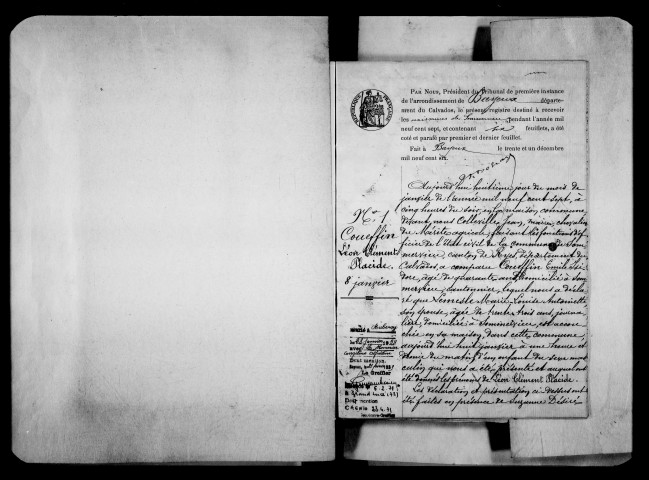 PAR NOUS, Président du Tribunal de première instance
de l'arrondissement de Bayeux départe-
ment du Calvados, le présent registre destiné à recevoir
les naissances de Sommervieu pendant l'année mil
neuf cent sept, et contenant six feuillets, a été
coté et parafé par premier et dernier feuillet.
Fait à Bayeux le trente et un décembre
mil neuf cent six.
N° 1
Coueffin
Léon Clément
Placide.
8 janvier
Aujourd'hui huitième jour du mois de
janvier de l'année mil neuf cent sept, à
cinq heures du soir, en la maison commune
devant nous Colleville Jean, maire, chevalier
du Mérite agricole, faisant les fonctions d'of-
ficier de l'état civil de la commune de Som-
mervieu, canton de Ryes, département du
Calvados, a comparu Coueffin Emile Isi-
dore, âgé de quarante ans, domicilié à Som-
mervieu, cantonnier, lequel nous a décla-
ré que Lemesle Marie Louise Antoinette
son épouse, âgée de trente trois ans, journa-
lière, domiciliée à Sommervieu, est accou-
chée en sa maison, dans cette commune
aujourd'hui huit janvier à une heure et
demie du matin d'un enfant du sexe mas-
culin qui nous a été présenté et auquel ont
été donnés les prénoms de Léon Clément Placide.
Les déclaration et présentation ci-dessus ont
été faites en présence de Suzanne Désiré
Dont mention
Le Greffier
5.2.71
Dont mention
CAEN le 23.4.71